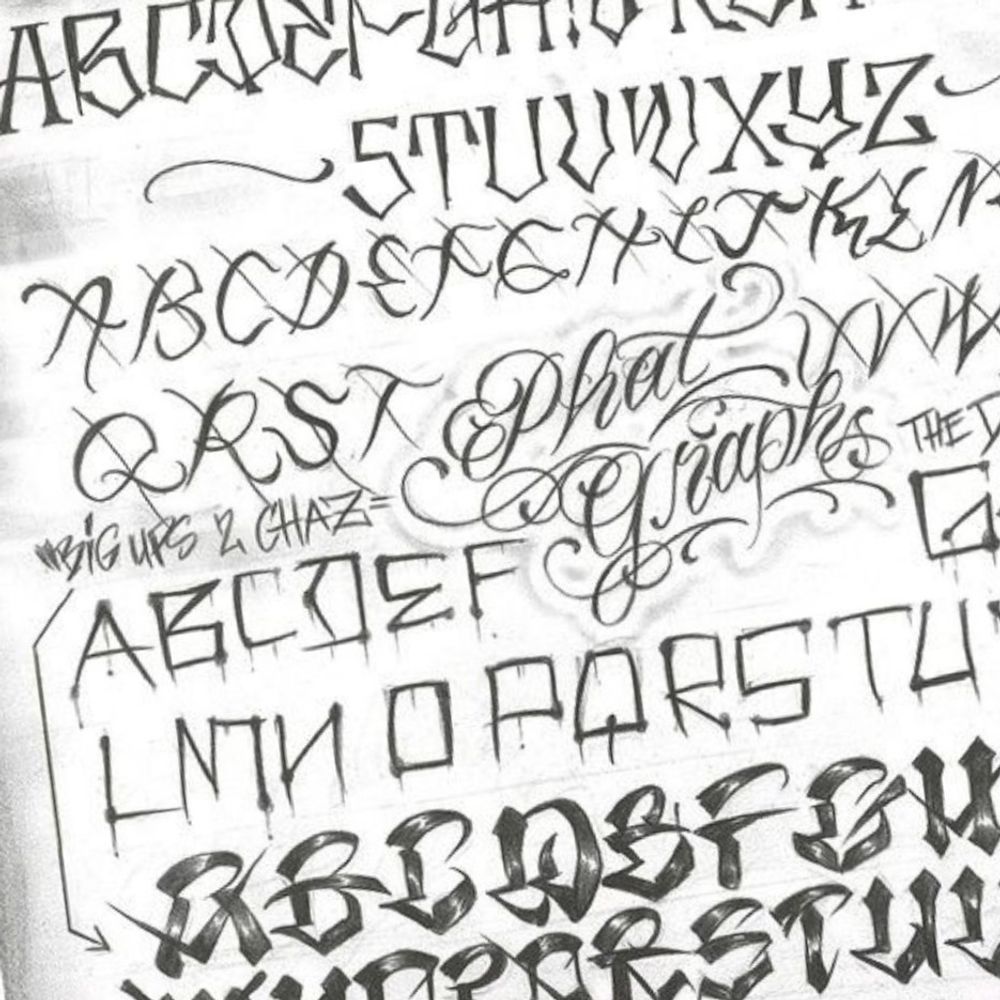 ABCDEFGHIJKLM
STUVWXYZ
ABCDEFGHIJKLM
QRST Phat VXW
Graphs
THE
"BIG UPS 2 CHAZ=
ABCDEF G
LMN O PQRSTU
ABCDEFGH
PQRSTUU